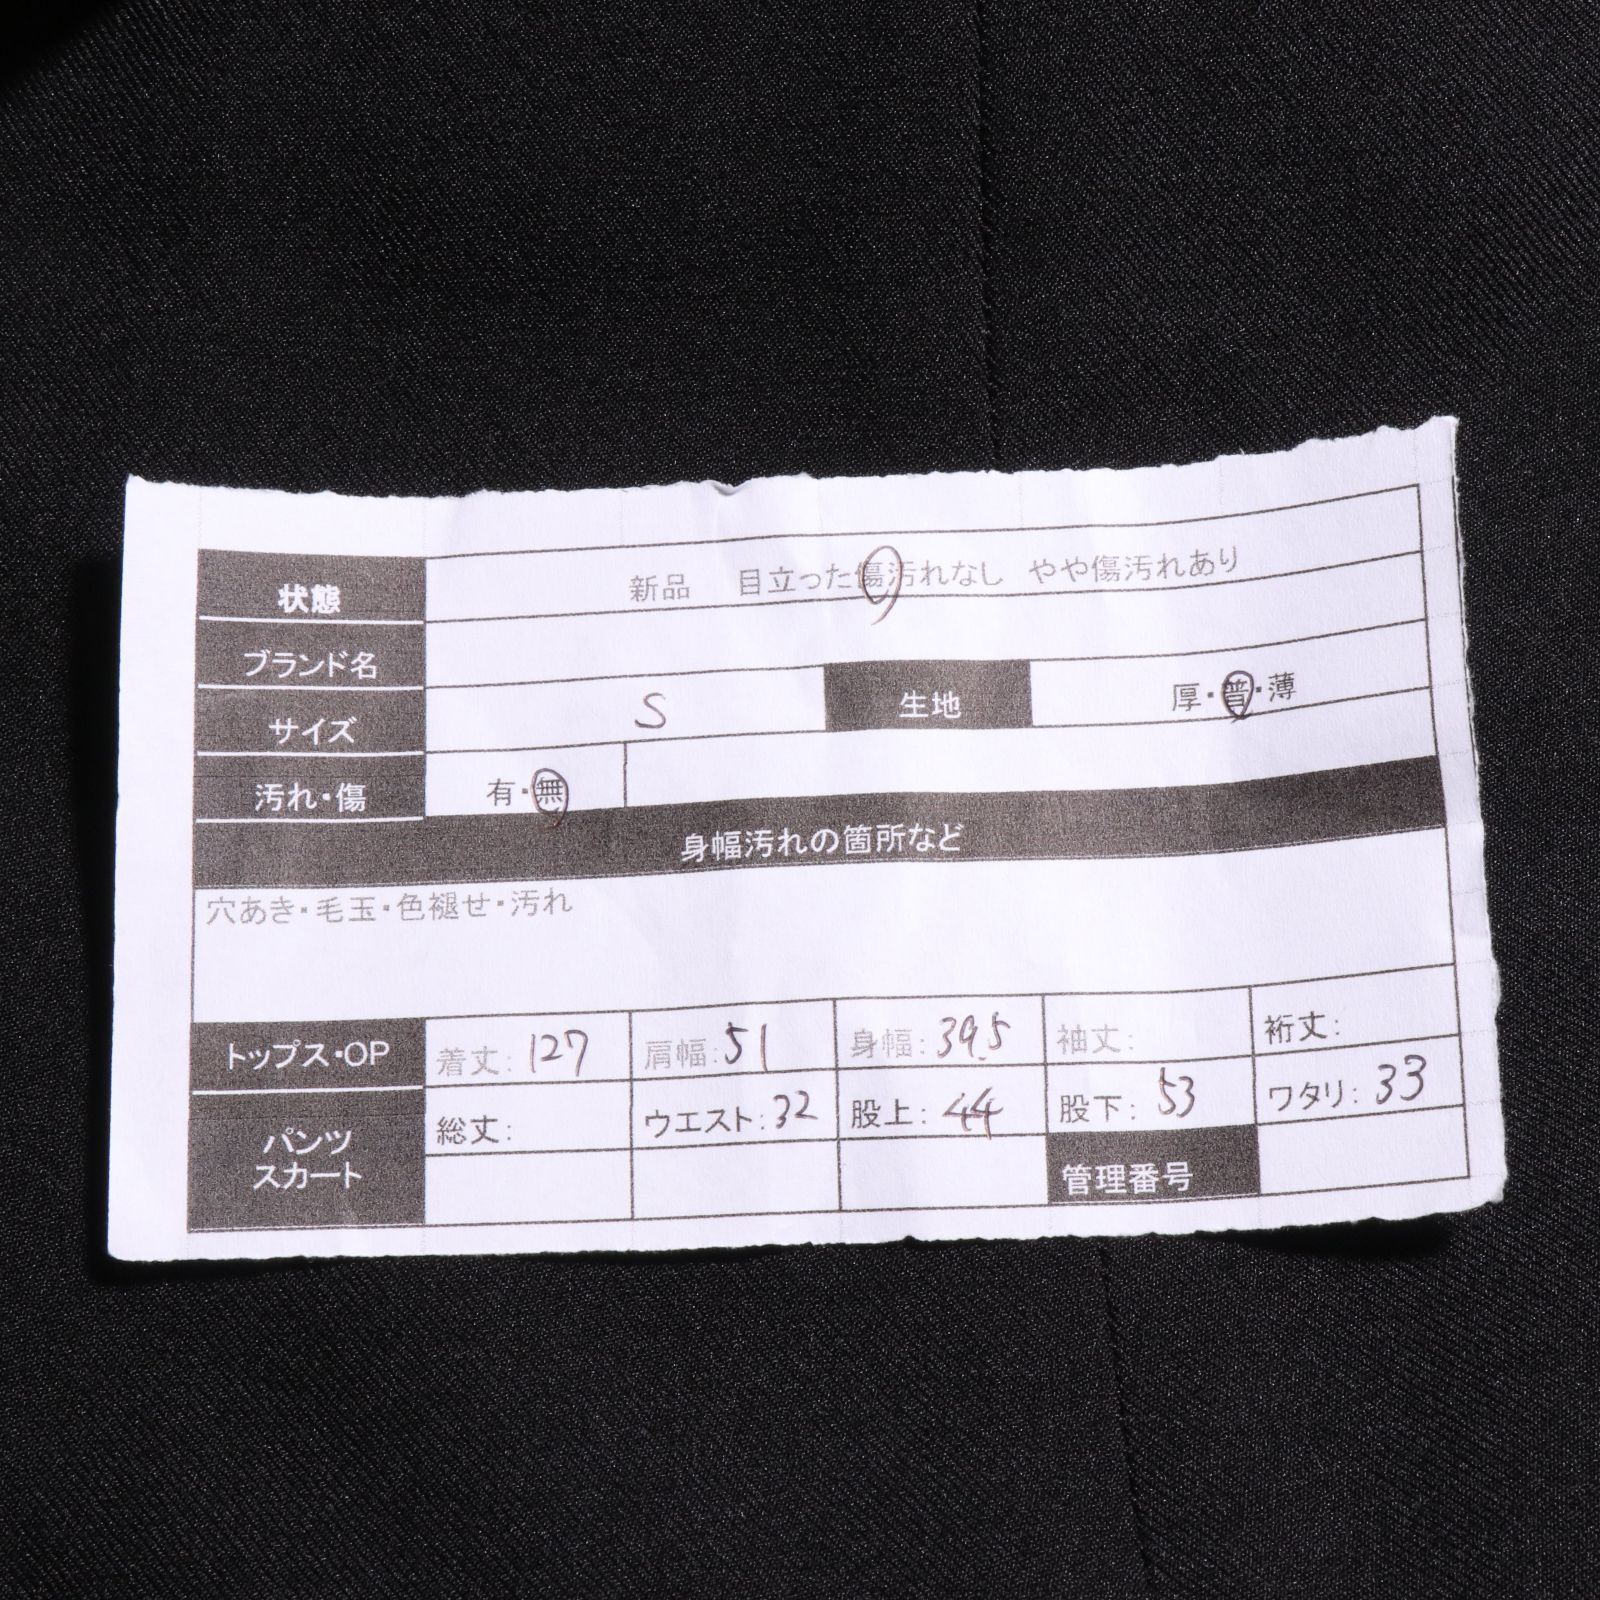 状態 新品 目立った傷汚れなし やや傷汚れあり
ブランド名
サイズ S 生地 厚・普・薄
汚れ・傷 有・無
身幅汚れの箇所など
穴あき・毛玉・色褪せ・汚れ
トップス・OP 着丈: 127 肩幅: 51 身幅: 39.5 袖丈: 裄丈:
パンツ スカート 総丈: ウエスト: 32 股上: 44 股下: 53 ワタリ: 33
管理番号